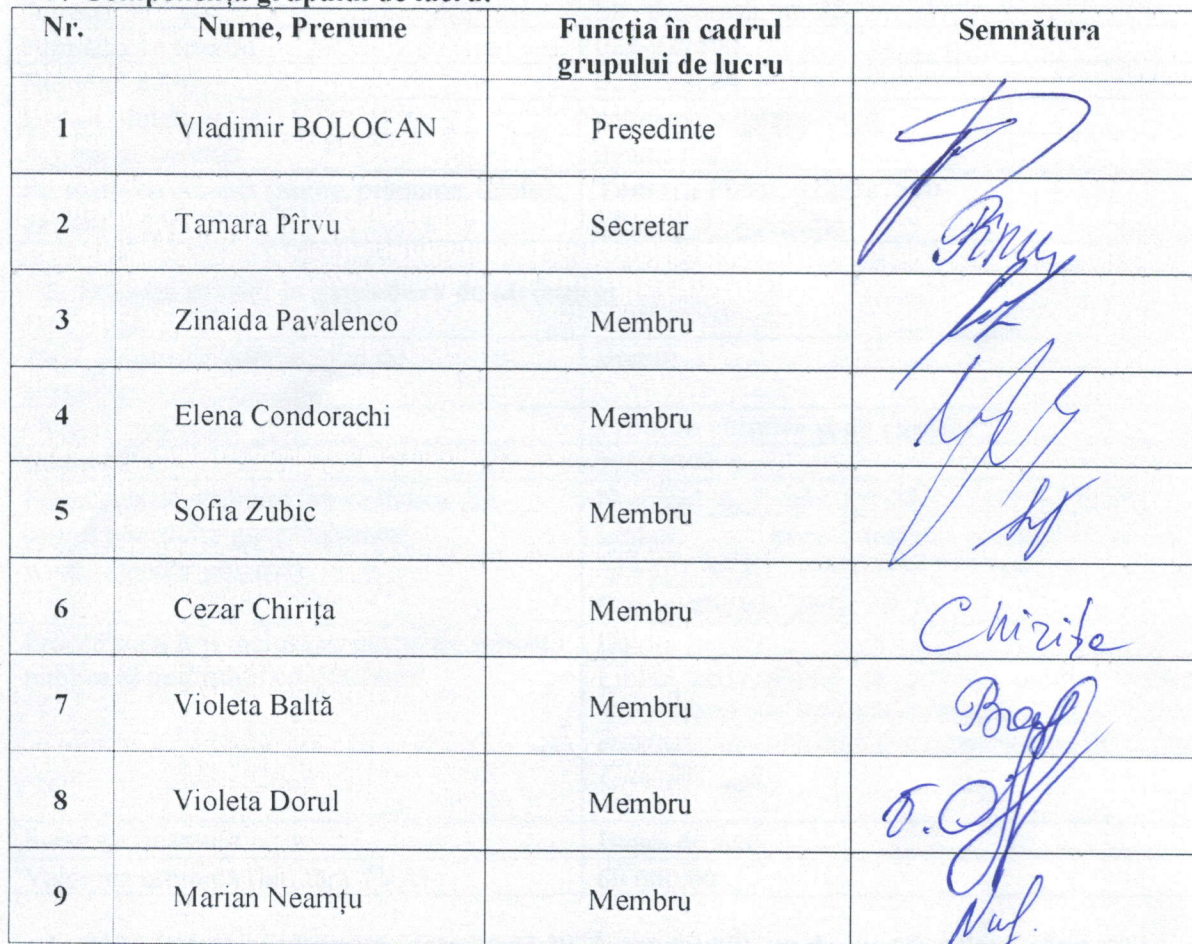 Componența grupului de lucru:
Nr. Nume, Prenume Funcția în cadrul grupului de lucru Semnătura
1 Vladimir BOLOCAN Președinte
2 Tamara Pîrvu Secretar
3 Zinaida Pavalenco Membru
4 Elena Condorachi Membru
5 Sofia Zubic Membru
6 Cezar Chirița Membru Chirița
7 Violeta Baltă Membru
8 Violeta Dorul Membru
9 Marian Neamțu Membru